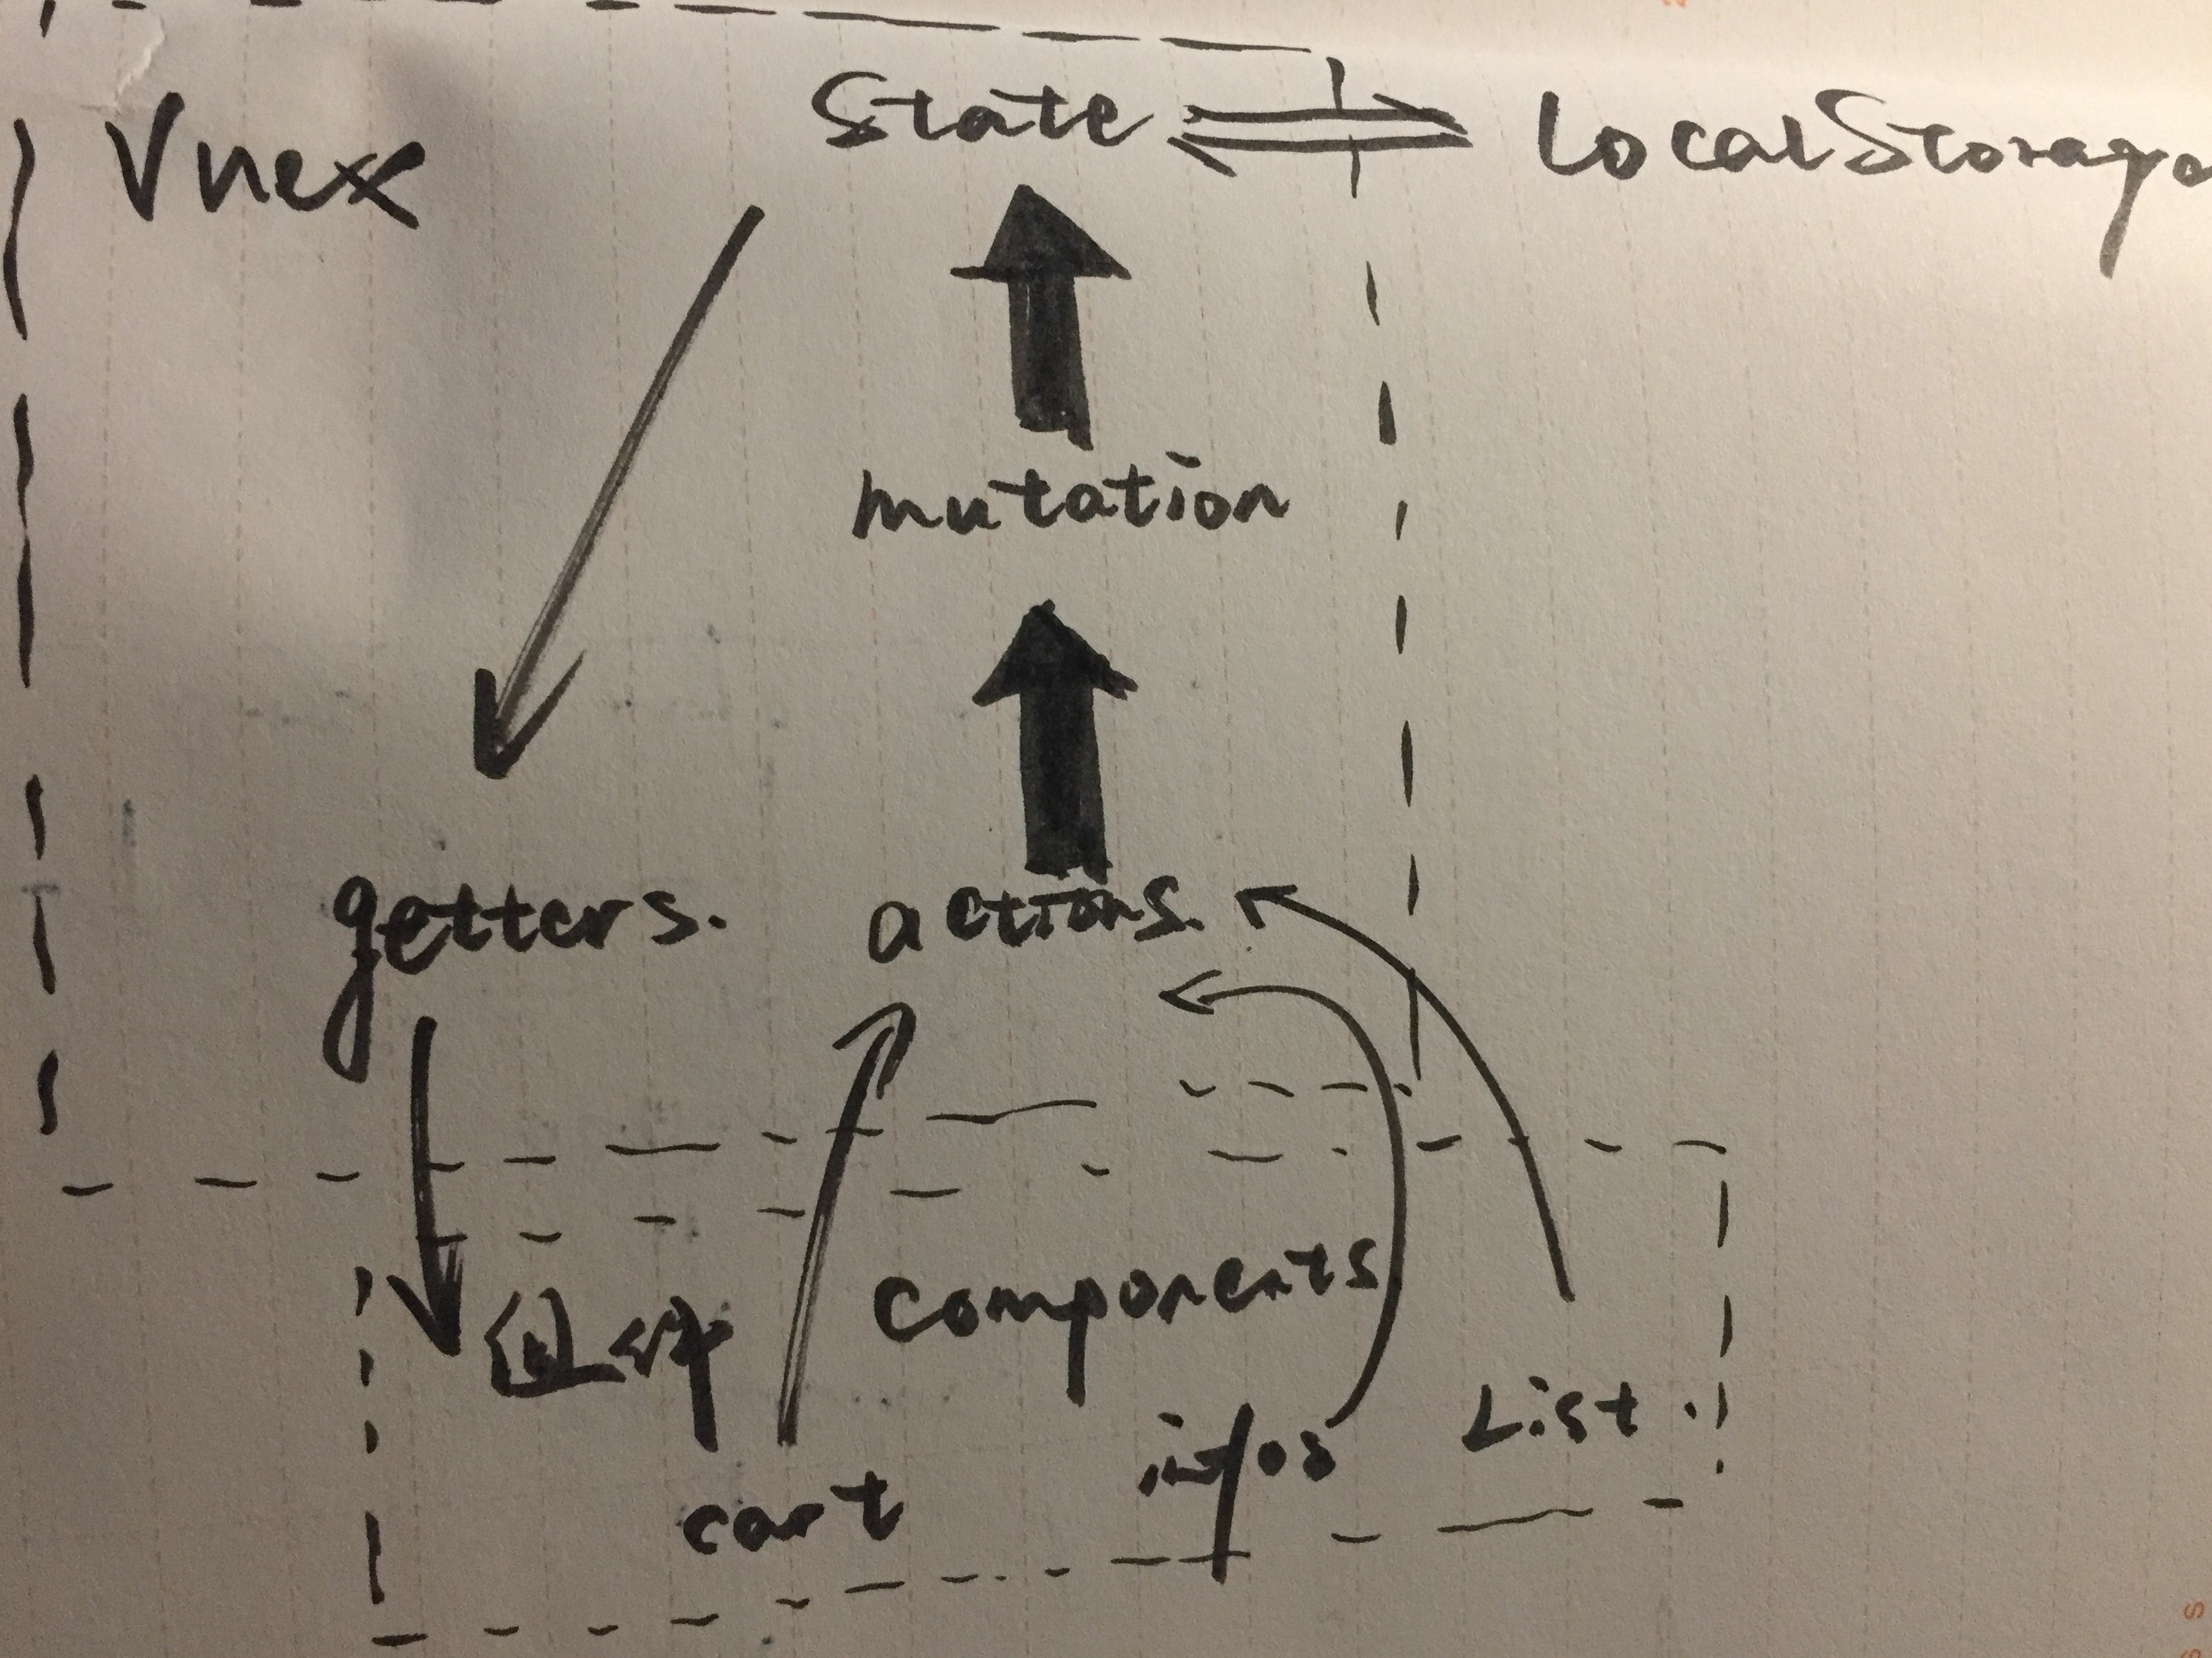 Vuex
State
LocalStorage
mutation
getters.
actions.
组件
components
cart
infos
List.